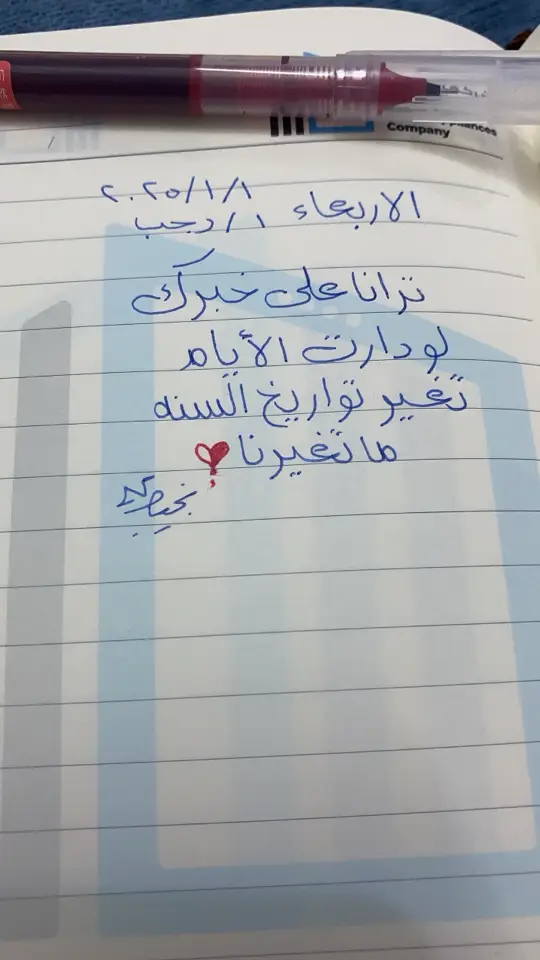 Company
الاربعاء ٢٠٢٥/١/١
١/رجب
ترانا على خبرك
لو دارت الأيام
تغير تواريخ السنه
ما تغيرنا